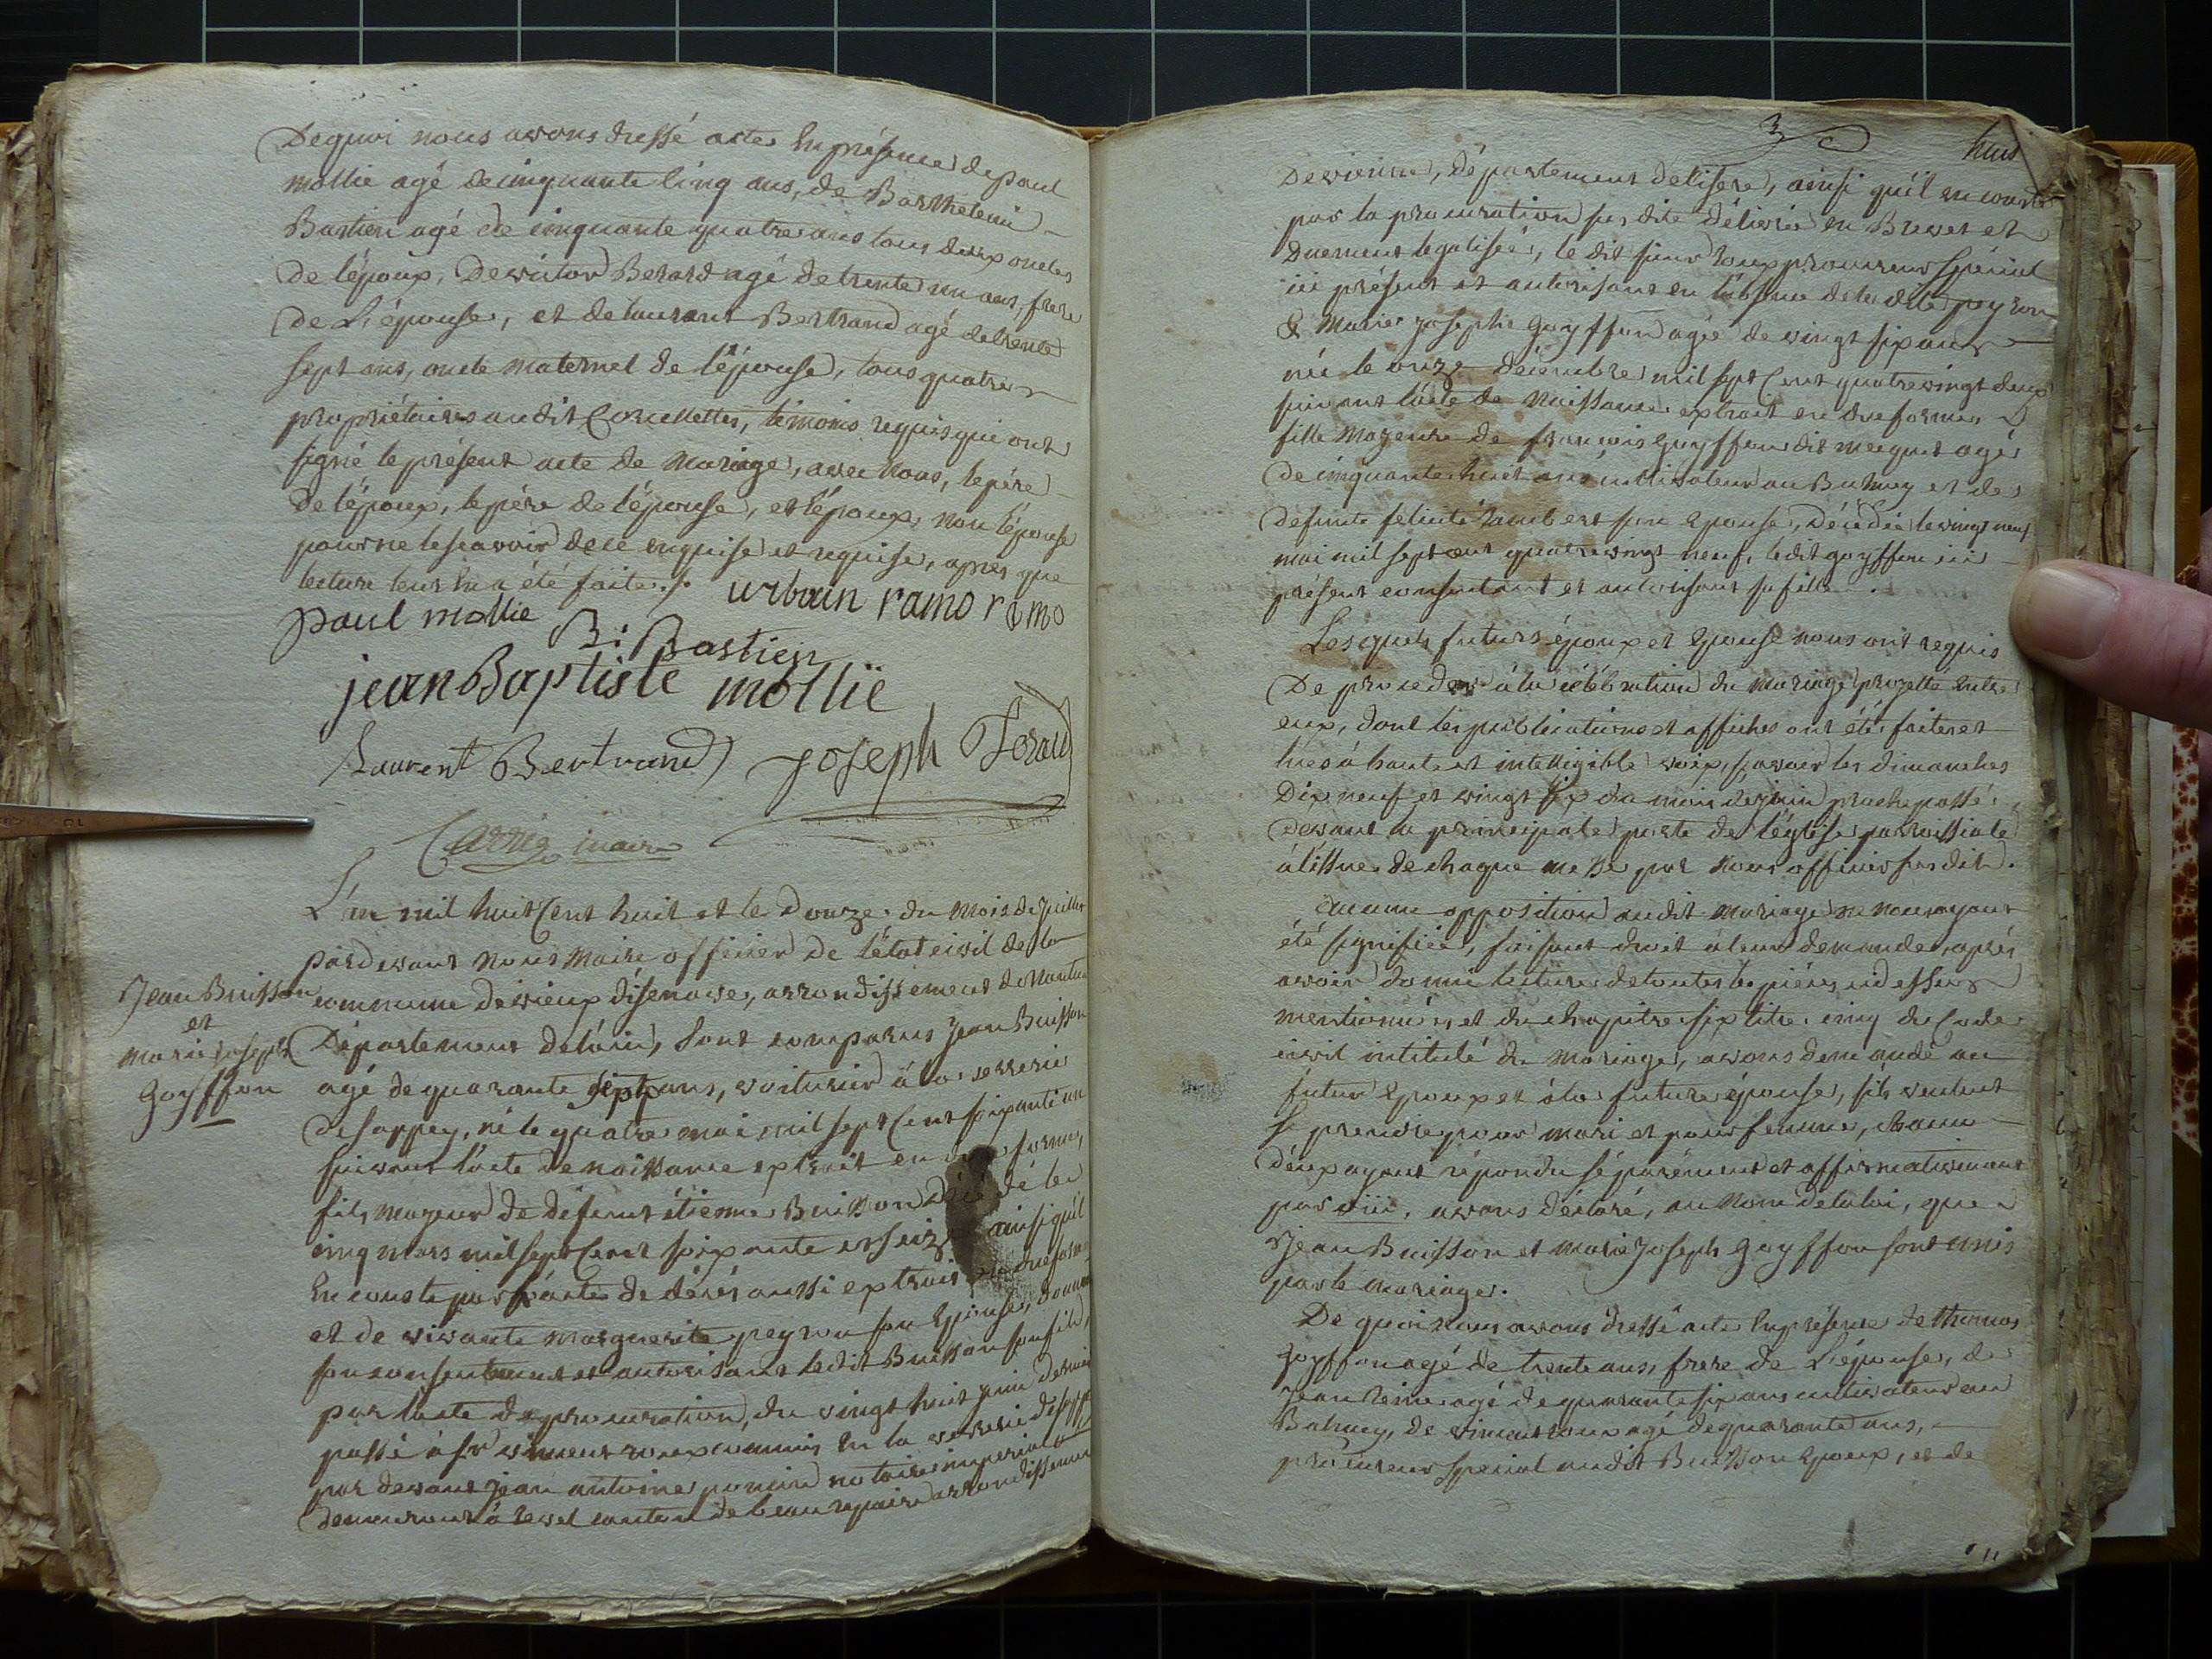 Dequoi nous avons dressé acte En présence de paul
mollie agé de cinquante Cinq ans, de Barthelemi
Bastien agé de cinquante quatre ans tous deux oncles
de l'époux, de victor Berard agé de trente un ans, frere
de L'épouse, et de laurent Bertrand agé de trente
sept ans, oncle maternel de l'épouse, tous quatre
propriétaires audit Corcellettes, temoins requis qui ont
signé le présent acte de mariage, avec nous, le père
de l'époux, le père de l'épouse, et l'époux, non l'épouse
pour ne le scavoir de ce enquise et requise, apres que
lecture leur En a été faite ./.
urbain ramo ramo
paul mollie
B: Bastien
jean Baptiste mollie
Laurent Bertrand joseph
Carrié maire
Jean Buisson
et
marie joseph
Goyffon
L'an mil huit Cent huit et le Douze du mois de Juillet
pardevant nous Maire officier de l'état civil de la
commune de vieux d'isenave, arrondissement de Nantua
Département de l'ain, Sont comparus Jean Buisson
agé de quarante Sept ans, voiturier à la verrerie
de sappey, né le quatre mai mil sept Cent soixante un
suivant l'acte de naissance extrait en forme,
fils mayeur de defunt étienne Buisson décédé le
cinq mars mil sept Cent soixante et seize ainsi qu'il
En conste par l'acte de décès aussi extrait en due forme
et de vivante marguerite peyron son Epouse, donnant
son consentement et autorisant ledit Buisson son fils,
par l'acte de procuration, du vingt huit juin dernier
passé à sr vincent roux commis En la verrerie
par devant Jean antoine notaire imperial
demeurant à revel canton de beaurepaire arrondissement
3 huit
De vienne, département de l'isere, ainsi qu'il en conste
par la procuration sus dite délivrée en Brevet et
duement legalisée, le dit sieur roux procureur spécial
ici présent et autorisant en l'absence de la dite peyron
& Marie Josephe Goyffon agée de vingt six ans
née le onze décembre mil sept Cent quatre vingt deux
suivant l'acte de naissance extrait en due forme
fille mayeure de françois goyffon dit agé
de cinquante huit ans cultivateur au Balmey et de
defunte felicité humbert son Epouse, Décédée le vingt neuf
mai mil sept cent quatre vingt neuf, ledit goyffon ici
présent consentant et autorisant sa fille.
Lesquels futurs époux et Epouse nous ont requis
De proceder à la célébration du mariage projetté entre
eux, dont les publications et affiches ont été faites et
lues à haute et intelligible voix, savoir les dimanches
Dix neuf et vingt six du mois de juin proche passé
devant la principale porte de l'église paroissiale
à l'issue de chaque messe par nous officier susdit.
Aucune opposition audit mariage ne nous ayant
été signifiée, faisant droit à leur demande, après
avoir donné lecture de toutes les pièces ci dessus
mentionnées, et du chapitre six titre cinq du Code
civil intitulé du Mariage, avons demandé au
futur Epoux et à la future épouse, s'ils veulent
se prendre pour mari et pour femme, chacun
d'eux ayant répondu séparément et affirmativement
par oui, avons déclaré, au nom de la loi, que
Jean Buisson et marie joseph Goyffon sont unis
par le mariage.
De quoi nous avons dressé acte En présence de thomas
goyffon agé de trente ans, frere de L'épouse, de
Jean Reine agé de quarante six ans cultivateur au
Balmey, de vincent roux agé de quarante ans,
procureur spécial audit Buisson Epoux, et de